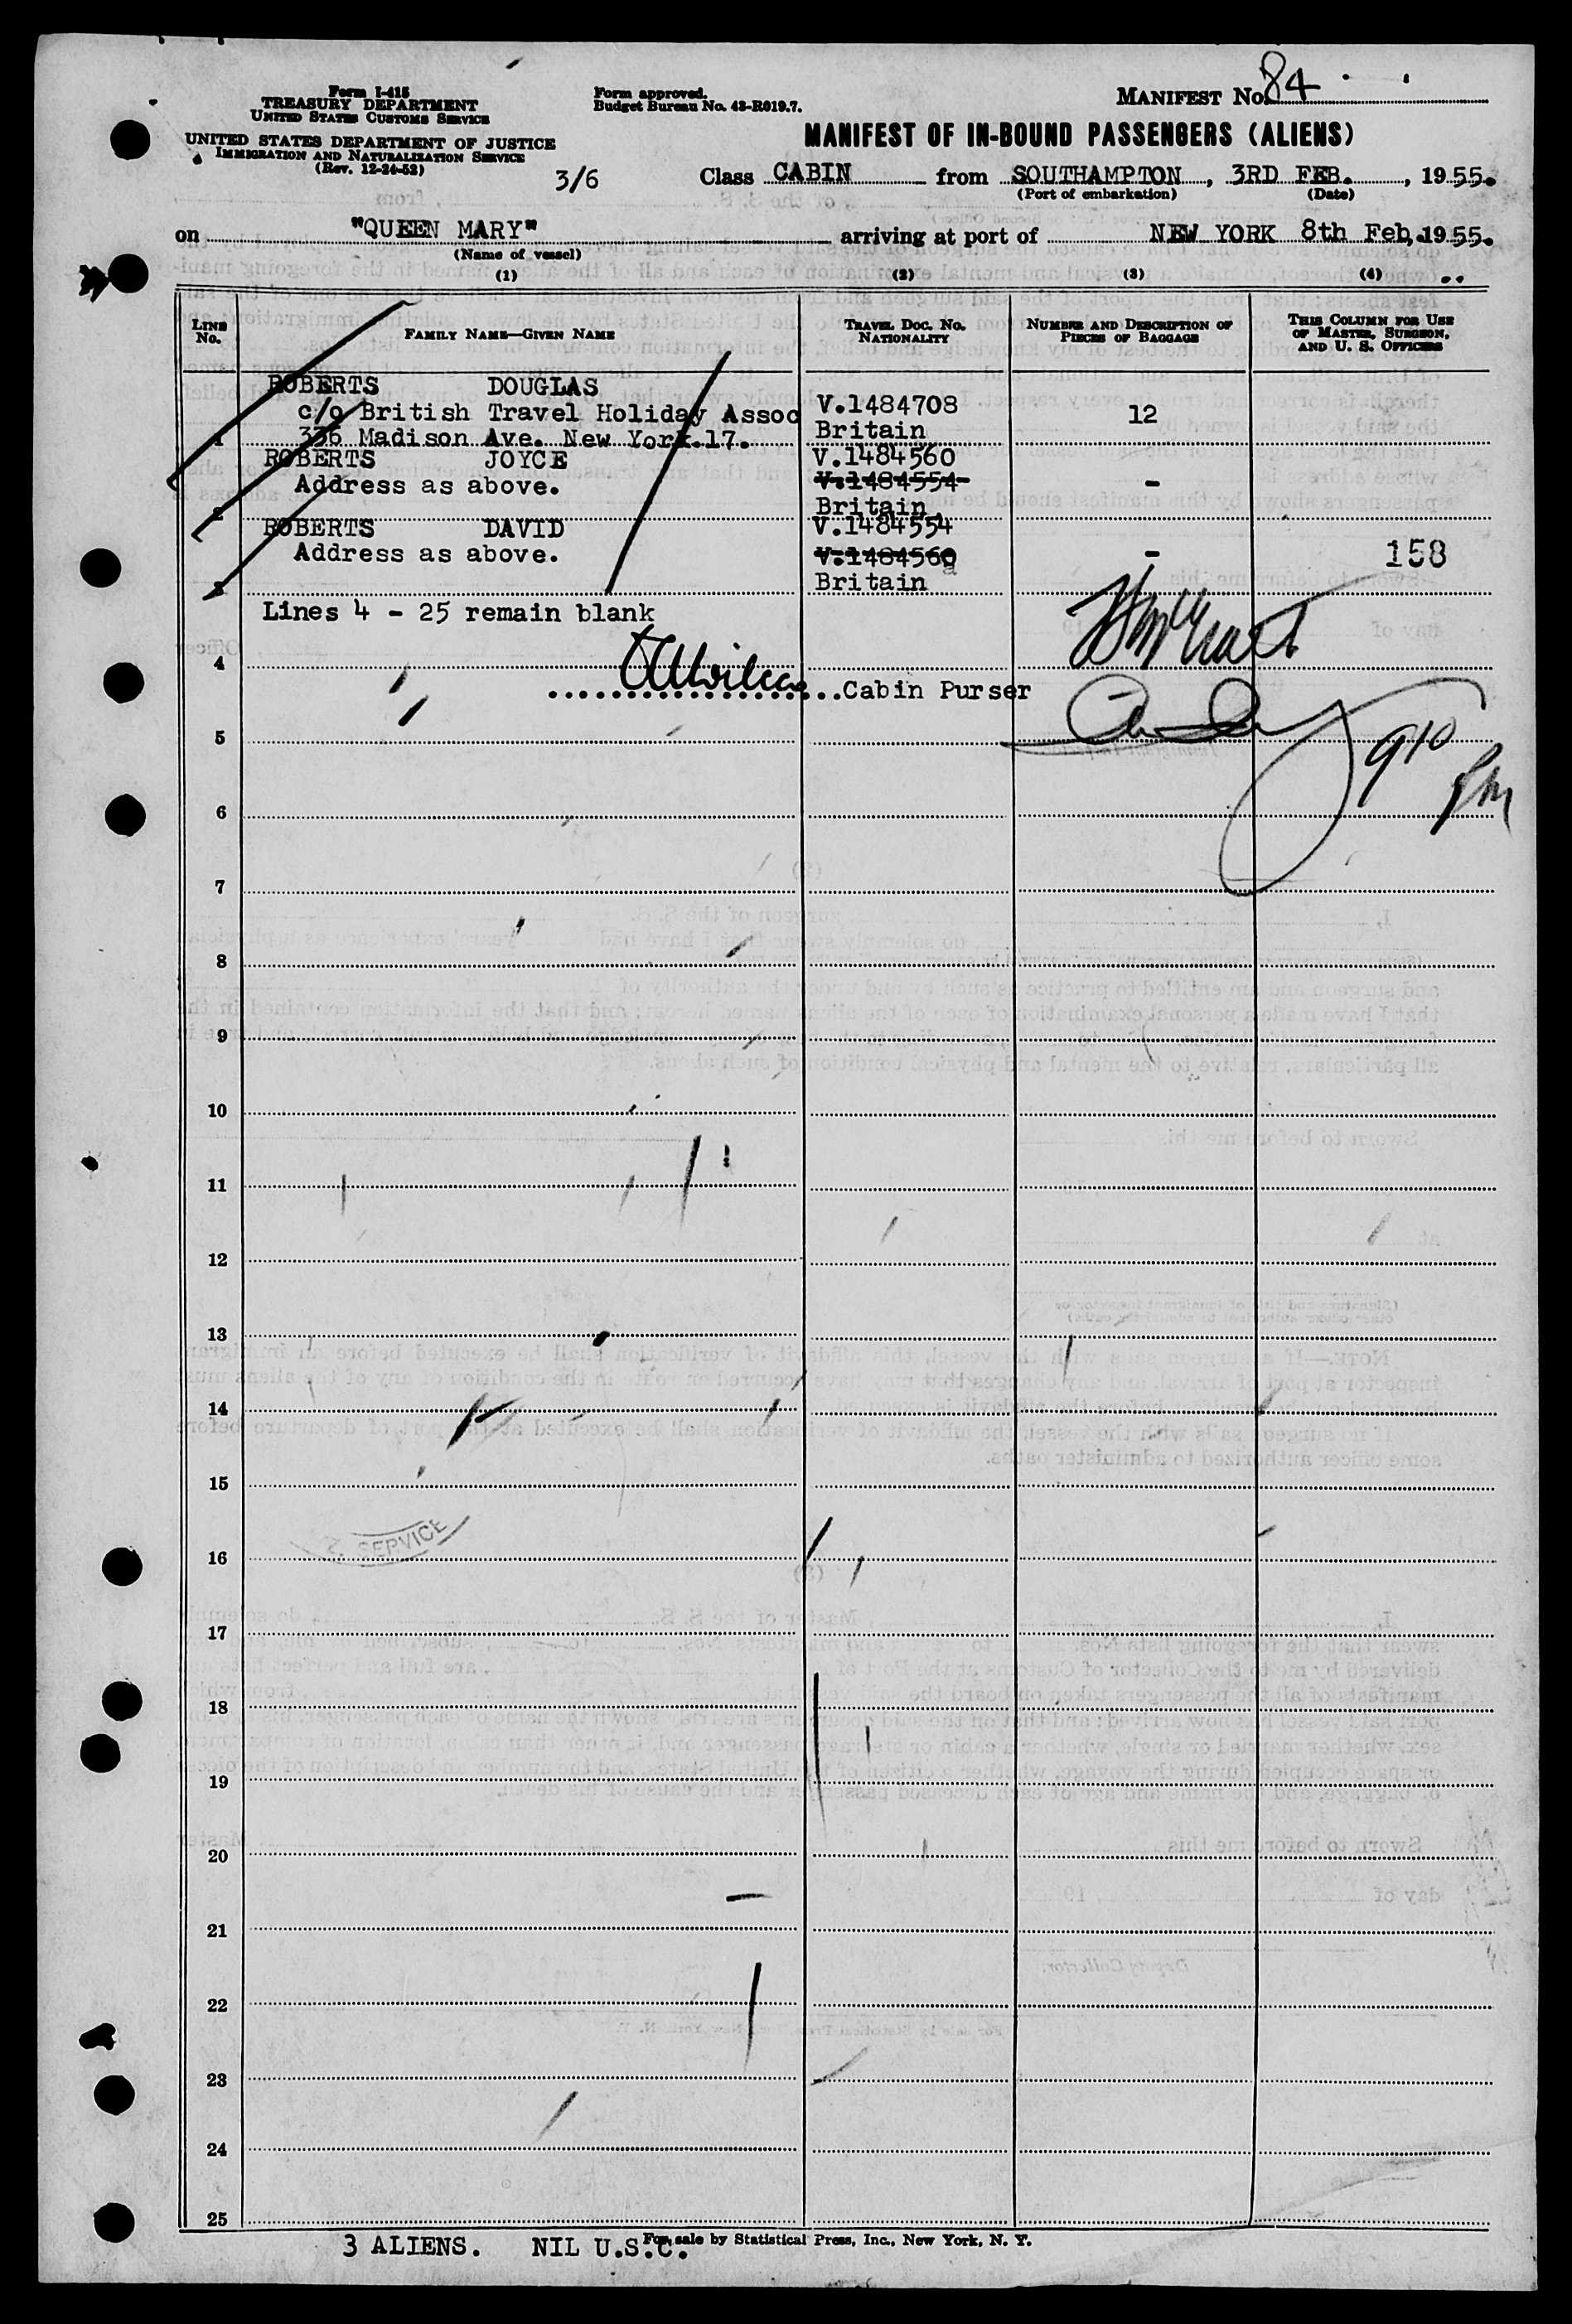 Form I-415
TREASURY DEPARTMENT
UNITED STATES CUSTOMS SERVICE
UNITED STATES DEPARTMENT OF JUSTICE
IMMIGRATION AND NATURALIZATION SERVICE
(Rev. 12-24-52)
Form approved.
Budget Bureau No. 43-R019.7.
MANIFEST No. 84
MANIFEST OF IN-BOUND PASSENGERS (ALIENS)
3/6
Class CABIN from SOUTHAMPTON, 3RD FEB., 1955.
(Port of embarkation) (Date)
on "QUEEN MARY" arriving at port of NEW YORK 8th Feb, 1955.
(Name of vessel)
(1) (2) (3) (4)
LINE No. FAMILY NAME—GIVEN NAME TRAVEL DOC. NO. NATIONALITY NUMBER AND DESCRIPTION OF PIECES OF BAGGAGE THIS COLUMN FOR USE OF MASTER, SURGEON, AND U. S. OFFICERS
ROBERTS DOUGLAS
c/o British Travel Holiday Assoc V.1484708 12
1 336 Madison Ave. New York.17. Britain
ROBERTS JOYCE V.1484560
Address as above. V.1484554 -
2 Britain
ROBERTS DAVID V.1484554
Address as above. V.1484560 - 158
3 Britain
Lines 4 - 25 remain blank
4
Cabin Purser
5
910 pm
6
7
8
9
10
11
12
13
14
15
SERVICE
16
17
18
19
20
21
22
23
24
25
3 ALIENS. NIL U.S.C.
For sale by Statistical Press, Inc., New York, N. Y.